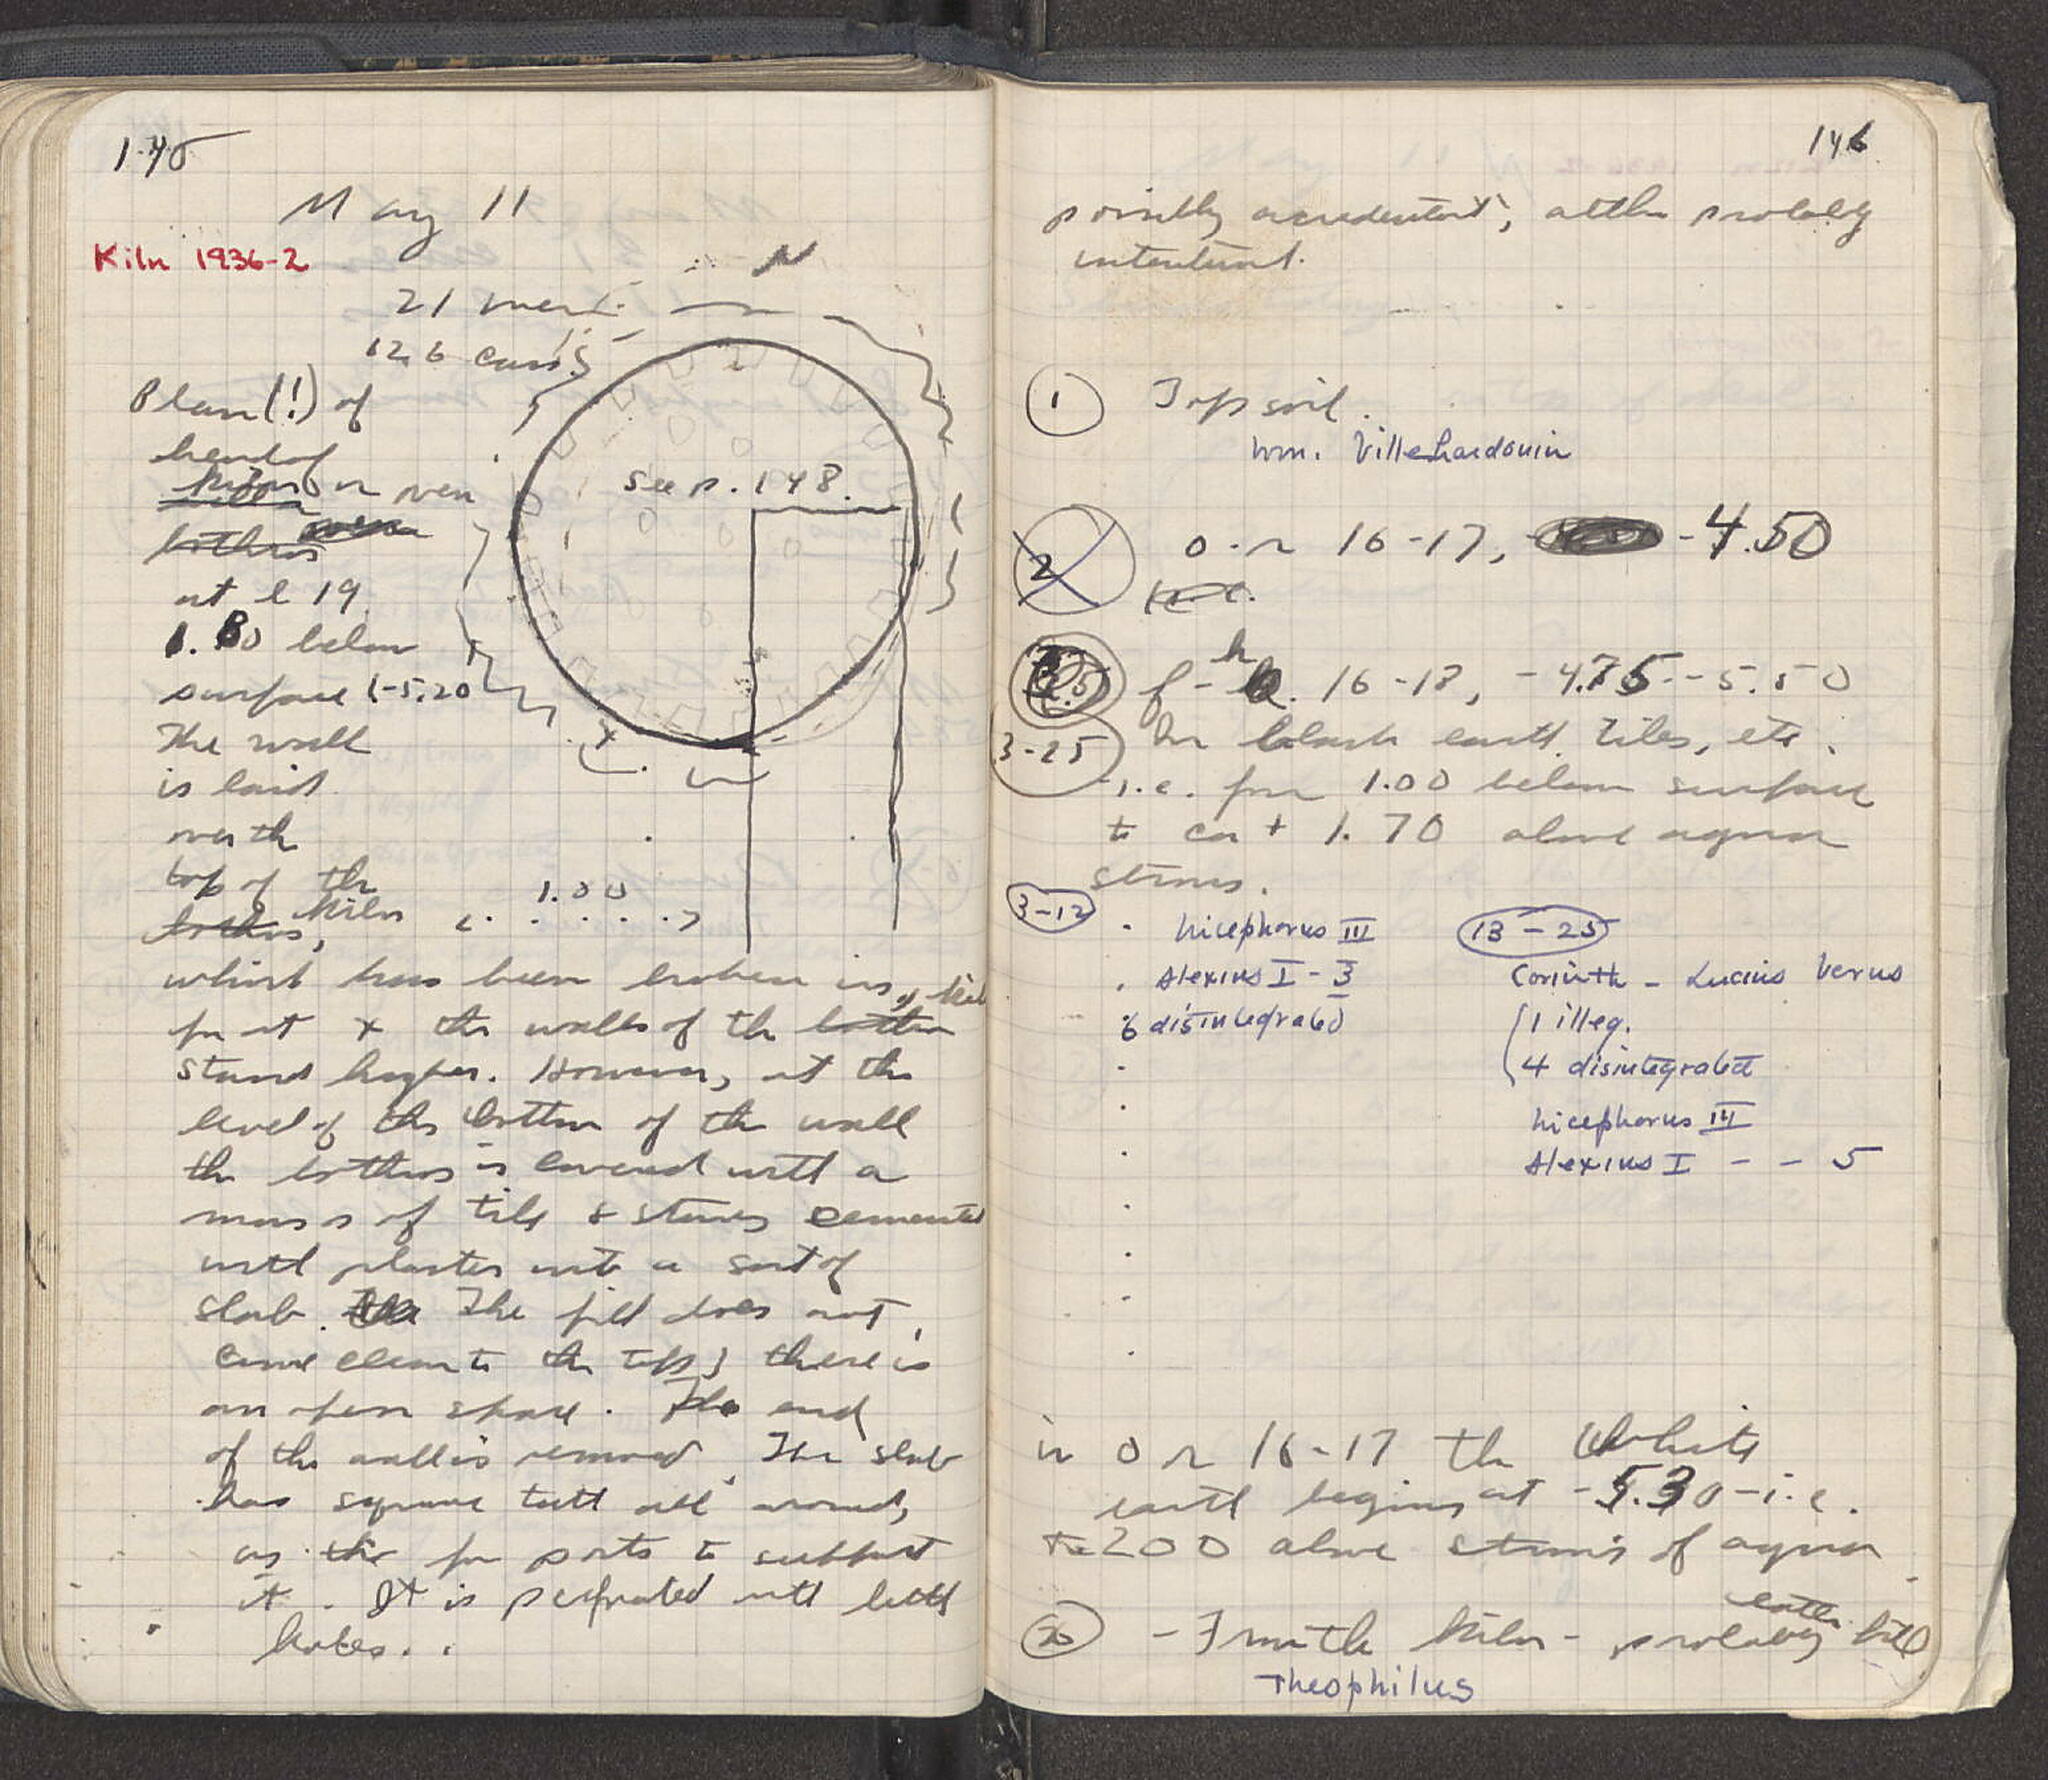 145
May 11
Kiln 1936-2
21 men
126 cars
Plan (!) of
head of
kiln or oven
bothros
at l 19
1.80 below
surface (-5.20
The wall
is laid
over the
top of the
bothros, kiln
1.00
N
See p. 148.
x
which has been broken in,
for at x the walls of the bothros
stand higher. However, at the
level of the bottom of the wall
the bothros is covered with a
mass of tile & stones cemented
with plaster into a sort of
slab. The fill does not
come clean to the top; there is
an open space. The end
of the wall is removed. The slab
has square teeth all around,
as for ports to support
it. It is perforated with little
holes.
146
possibly accidental, altho probably
intentional.
1 Topsoil.
Wm. Villehardouin
2 o-r 16-17, -4.50
f-h. 16-18, -4.75--5.50
3-25 In black earth, tiles, etc.
-i.e. from 1.00 below surface
to ca + 1.70 above agora
stones.
3-12
Nicephorus III
Alexius I - 3
6 disintegrated
13-25
Corinth - Lucius Verus
1 illeg.
4 disintegrated
Nicephorus III
Alexius I - - 5
in o r 16-17 the white
earth begins at -5.30-i.e.
to 200 above stones of agora
26 - From the kiln - probably
Theophilus